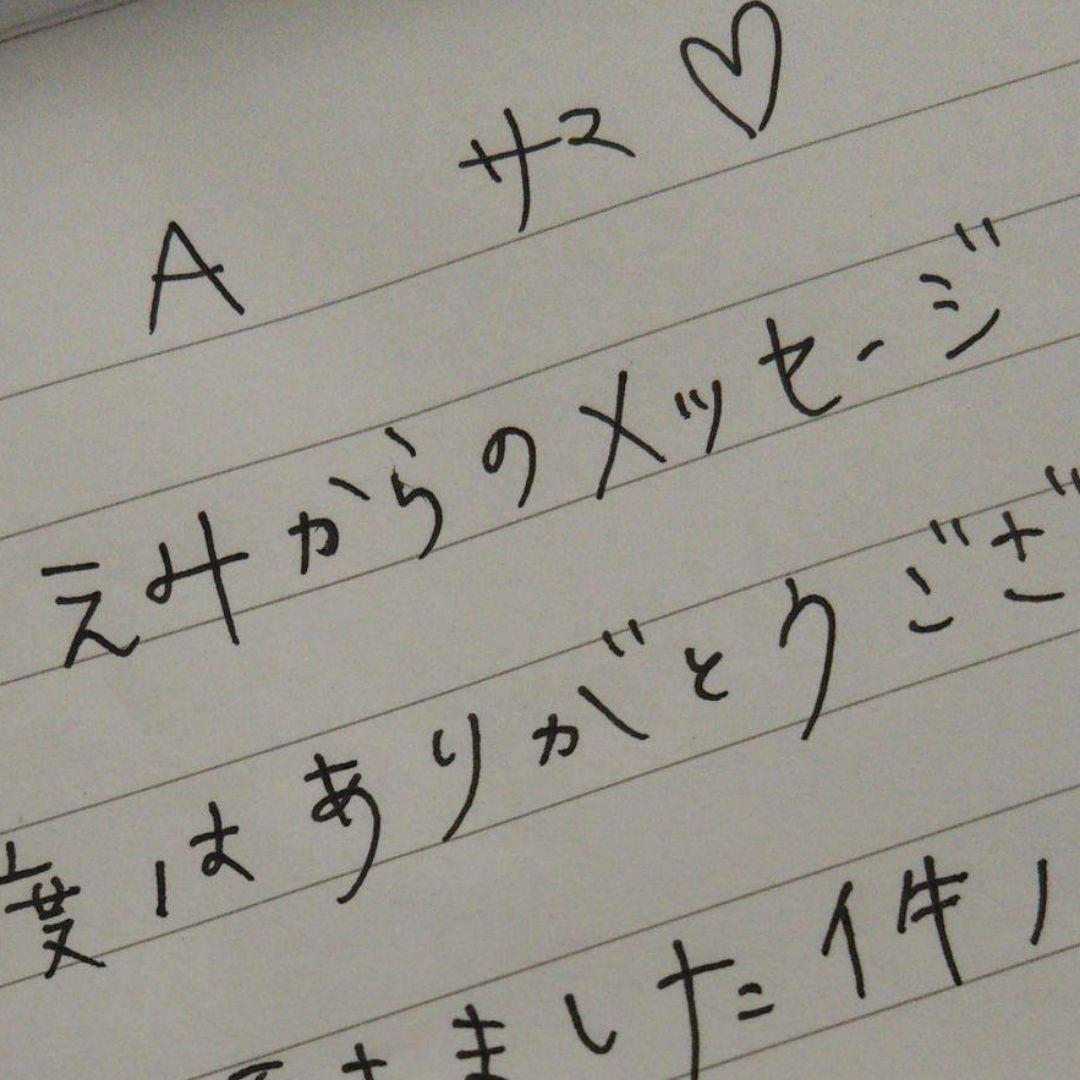 A サマ♡
えみからのメッセージ
度はありがとうござ
きました件